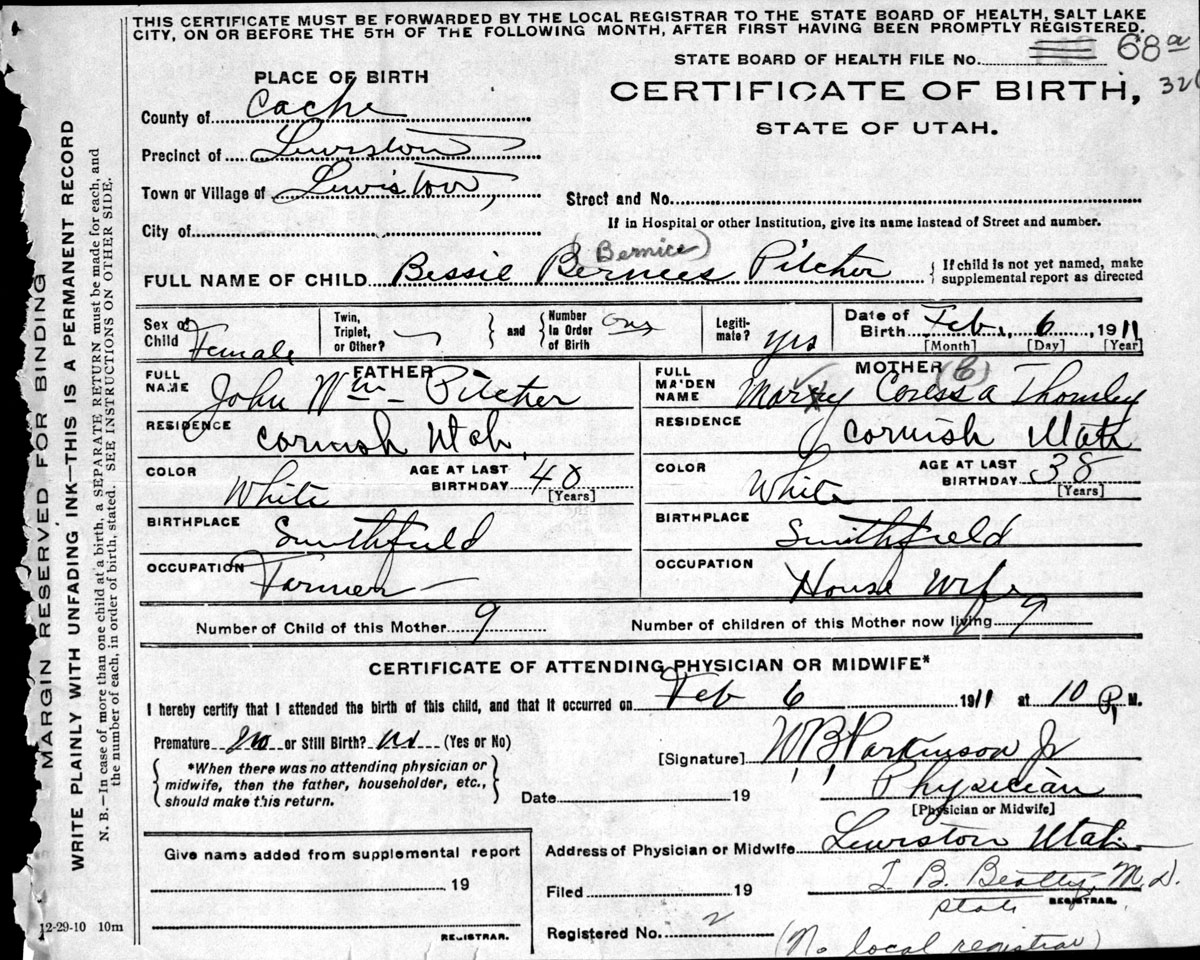 THIS CERTIFICATE MUST BE FORWARDED BY THE LOCAL REGISTRAR TO THE STATE BOARD OF HEALTH, SALT LAKE
CITY, ON OR BEFORE THE 5TH OF THE FOLLOWING MONTH, AFTER FIRST HAVING BEEN PROMPTLY REGISTERED.
STATE BOARD OF HEALTH FILE NO. 68a
326
PLACE OF BIRTH
CERTIFICATE OF BIRTH,
STATE OF UTAH.
County of Cache
Precinct of Lewiston
Town or Village of Lewiston,
Street and No.
If in Hospital or other Institution, give its name instead of Street and number.
City of
(Bernice)
FULL NAME OF CHILD Bessie Bernees Pitcher
{ If child is not yet named, make
supplemental report as directed
Sex of Child Female
Twin, Triplet, or Other? } and { Number In Order of Birth One
Legiti-mate? yes
Date of Birth Feb, 6, 1911
[Month] [Day] [Year]
FATHER
FULL NAME John Wm Pitcher
RESIDENCE Cornish Utah,
COLOR White AGE AT LAST BIRTHDAY 40 [Years]
BIRTHPLACE Smithfield
OCCUPATION Farmer
MOTHER (6)
FULL MAIDEN NAME Mary Coressa Thornley
RESIDENCE Cornish Utah
COLOR White AGE AT LAST BIRTHDAY 38 [Years]
BIRTHPLACE Smithfield
OCCUPATION House Wife
Number of Child of this Mother 9
Number of children of this Mother now living 9
CERTIFICATE OF ATTENDING PHYSICIAN OR MIDWIFE*
I hereby certify that I attended the birth of this child, and that it occurred on Feb 6 1911 at 10 P. M.
Premature no or Still Birth? no (Yes or No)
{ *When there was no attending physician or
midwife, then the father, householder, etc.,
should make this return. }
[Signature] W B Parkinson Jr
Date 19 Physician
[Physician or Midwife]
Give name added from supplemental report
19
REGISTRAR.
Address of Physician or Midwife Lewiston Utah
Filed 19 T. B. Beatty, M.D.
State REGISTRAR.
Registered No. 2
(No local registrar)
12-29-10 10m
MARGIN RESERVED FOR BINDING
WRITE PLAINLY WITH UNFADING INK—THIS IS A PERMANENT RECORD
N. B.—In case of more than one child at a birth, a SEPARATE RETURN must be made for each, and
the number of each, in order of birth, stated. SEE INSTRUCTIONS ON OTHER SIDE.